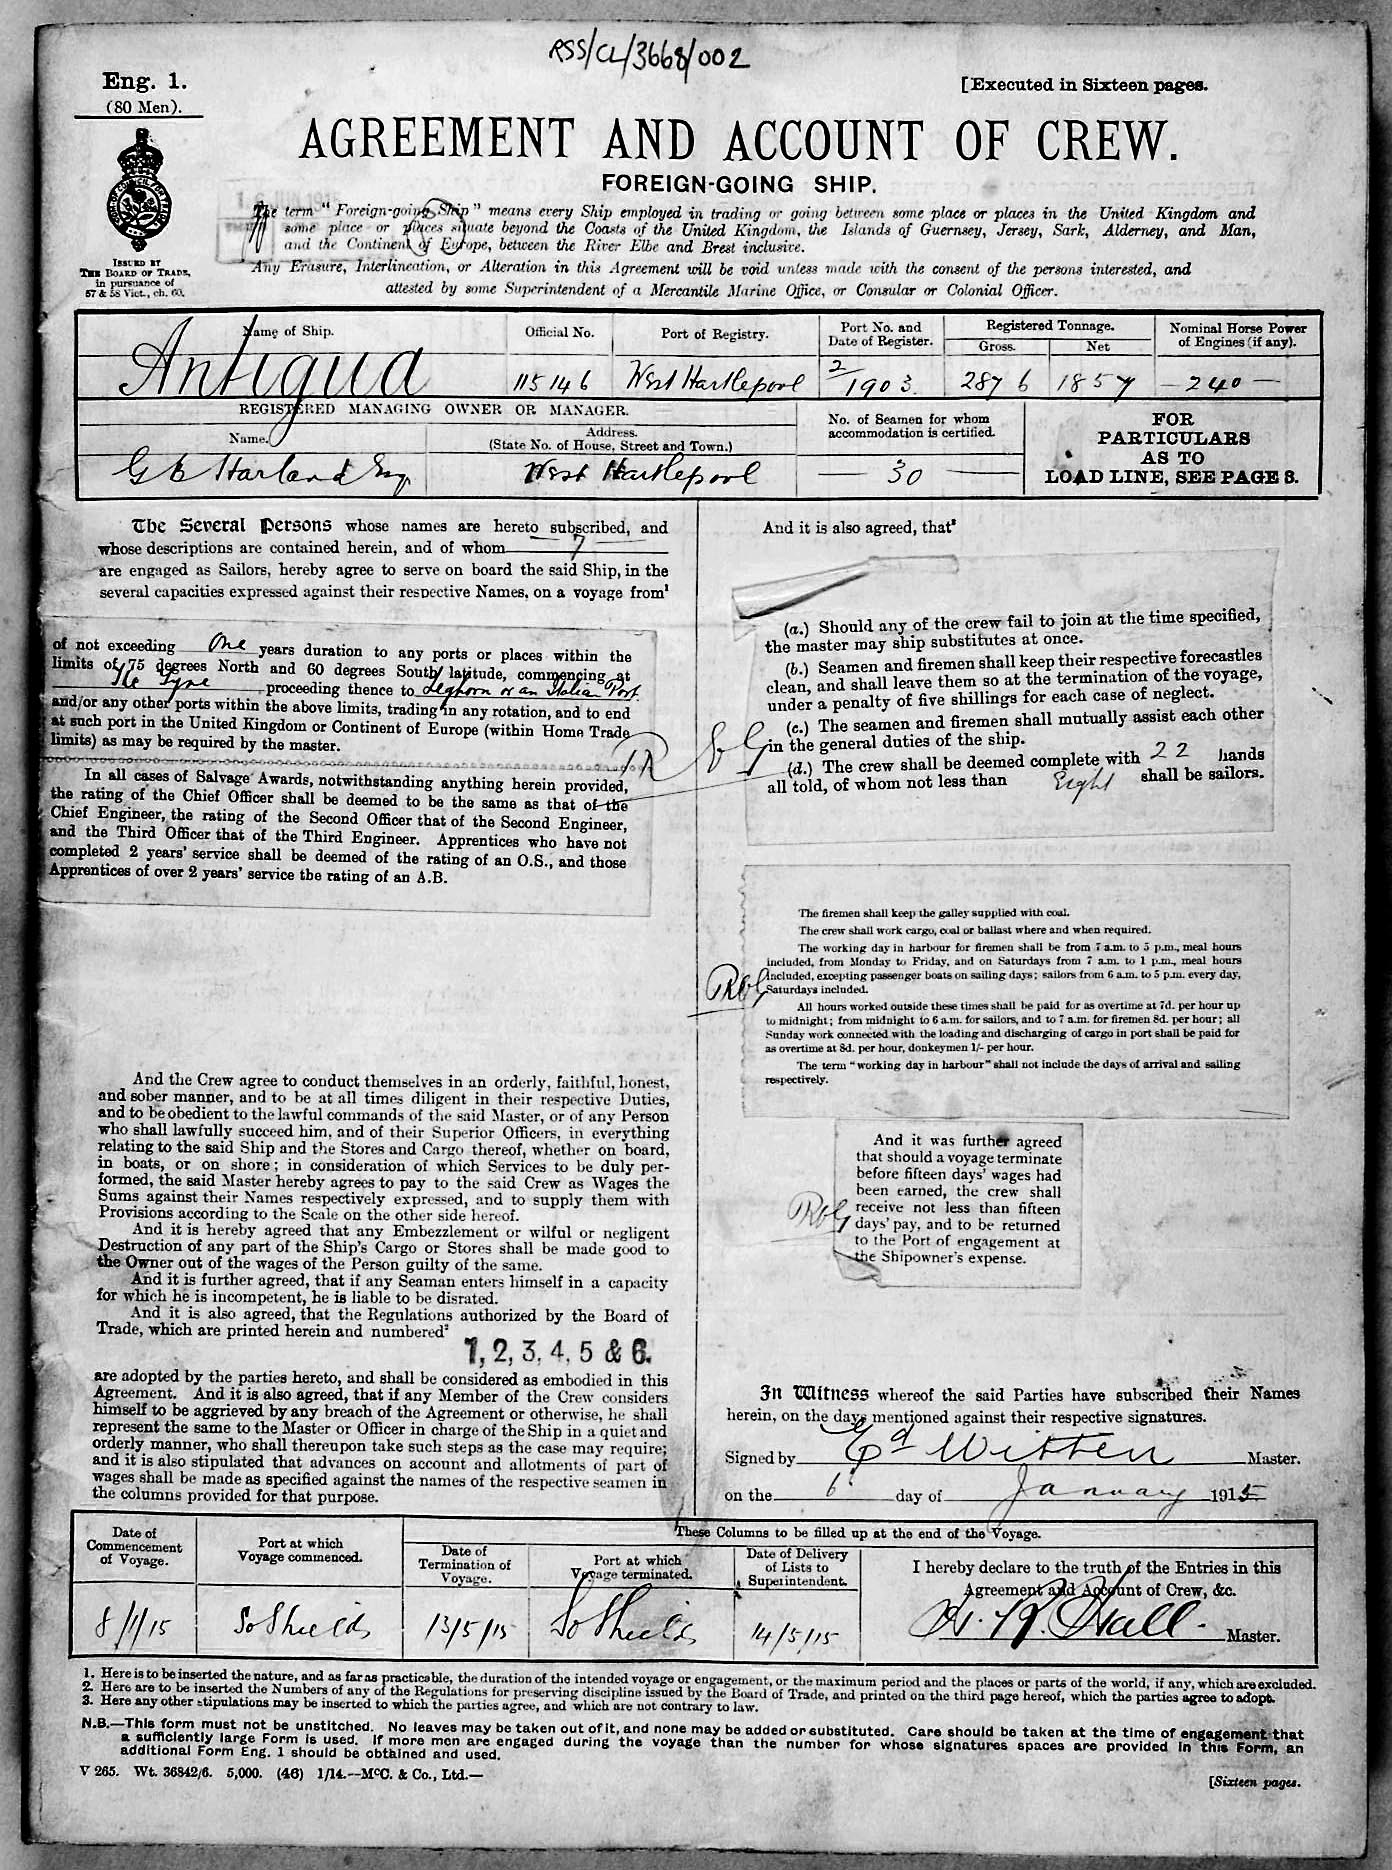 RSS/CL/3668/002
Eng. 1.
(80 Men).
[Executed in Sixteen pages.
AGREEMENT AND ACCOUNT OF CREW.
FOREIGN-GOING SHIP.
ISSUED BY
THE BOARD OF TRADE,
in pursuance of
57 & 58 Vict., ch. 60.
The term "Foreign-going Ship" means every Ship employed in trading or going between some place or places in the United Kingdom and
some place or places situate beyond the Coasts of the United Kingdom, the Islands of Guernsey, Jersey, Sark, Alderney, and Man,
and the Continent of Europe, between the River Elbe and Brest inclusive.
Any Erasure, Interlineation, or Alteration in this Agreement will be void unless made with the consent of the persons interested, and
attested by some Superintendent of a Mercantile Marine Office, or Consular or Colonial Officer.
Name of Ship.
Official No.
Port of Registry.
Port No. and
Date of Register.
Registered Tonnage.
Gross.
Net
Nominal Horse Power
of Engines (if any).
Antigua
115146
West Hartlepool
2/1903.
2876
1857
— 240 —
REGISTERED MANAGING OWNER OR MANAGER.
Name.
Address.
(State No. of House, Street and Town.)
No. of Seamen for whom
accommodation is certified.
FOR
PARTICULARS
AS TO
LOAD LINE, SEE PAGE 3.
Harland Esq
West Hartlepool
— 30 —
The Several Persons whose names are hereto subscribed, and
whose descriptions are contained herein, and of whom — 7 —
are engaged as Sailors, hereby agree to serve on board the said Ship, in the
several capacities expressed against their respective Names, on a voyage from¹
of not exceeding One years duration to any ports or places within the
limits of 75 degrees North and 60 degrees South latitude, commencing at
The Tyne proceeding thence to Leghorn or an Italian Port
and/or any other ports within the above limits, trading in any rotation, and to end
at such port in the United Kingdom or Continent of Europe (within Home Trade
limits) as may be required by the master.
In all cases of Salvage Awards, notwithstanding anything herein provided,
the rating of the Chief Officer shall be deemed to be the same as that of the
Chief Engineer, the rating of the Second Officer that of the Second Engineer,
and the Third Officer that of the Third Engineer. Apprentices who have not
completed 2 years' service shall be deemed of the rating of an O.S., and those
Apprentices of over 2 years' service the rating of an A.B.
And the Crew agree to conduct themselves in an orderly, faithful, honest,
and sober manner, and to be at all times diligent in their respective Duties,
and to be obedient to the lawful commands of the said Master, or of any Person
who shall lawfully succeed him, and of their Superior Officers, in everything
relating to the said Ship and the Stores and Cargo thereof, whether on board,
in boats, or on shore; in consideration of which Services to be duly per-
formed, the said Master hereby agrees to pay to the said Crew as Wages the
Sums against their Names respectively expressed, and to supply them with
Provisions according to the Scale on the other side hereof.
And it is hereby agreed that any Embezzlement or wilful or negligent
Destruction of any part of the Ship's Cargo or Stores shall be made good to
the Owner out of the wages of the Person guilty of the same.
And it is further agreed, that if any Seaman enters himself in a capacity
for which he is incompetent, he is liable to be disrated.
And it is also agreed, that the Regulations authorized by the Board of
Trade, which are printed herein and numbered²
1, 2, 3, 4, 5 & 6.
are adopted by the parties hereto, and shall be considered as embodied in this
Agreement. And it is also agreed, that if any Member of the Crew considers
himself to be aggrieved by any breach of the Agreement or otherwise, he shall
represent the same to the Master or Officer in charge of the Ship in a quiet and
orderly manner, who shall thereupon take such steps as the case may require;
and it is also stipulated that advances on account and allotments of part of
wages shall be made as specified against the names of the respective seamen in
the columns provided for that purpose.
And it is also agreed, that³
(a.) Should any of the crew fail to join at the time specified,
the master may ship substitutes at once.
(b.) Seamen and firemen shall keep their respective forecastles
clean, and shall leave them so at the termination of the voyage,
under a penalty of five shillings for each case of neglect.
(c.) The seamen and firemen shall mutually assist each other
in the general duties of the ship.
(d.) The crew shall be deemed complete with 22 hands
all told, of whom not less than Eight shall be sailors.
The firemen shall keep the galley supplied with coal.
The crew shall work cargo, coal or ballast where and when required.
The working day in harbour for firemen shall be from 7 a.m. to 5 p.m., meal hours
included, from Monday to Friday, and on Saturdays from 7 a.m. to 1 p.m., meal hours
included, excepting passenger boats on sailing days; sailors from 6 a.m. to 5 p.m. every day,
Saturdays included.
All hours worked outside these times shall be paid for as overtime at 7d. per hour up
to midnight; from midnight to 6 a.m. for sailors, and to 7 a.m. for firemen 8d. per hour; all
Sunday work connected with the loading and discharging of cargo in port shall be paid for
as overtime at 8d. per hour, donkeymen 1/- per hour.
The term "working day in harbour" shall not include the days of arrival and sailing
respectively.
And it was further agreed
that should a voyage terminate
before fifteen days' wages had
been earned, the crew shall
receive not less than fifteen
days' pay, and to be returned
to the Port of engagement at
the Shipowner's expense.
In Witness whereof the said Parties have subscribed their Names
herein, on the days mentioned against their respective signatures.
Signed by Ed Witten Master.
on the 6 day of January 1915
Date of
Commencement
of Voyage.
Port at which
Voyage commenced.
These Columns to be filled up at the end of the Voyage.
Date of
Termination of
Voyage.
Port at which
Voyage terminated.
Date of Delivery
of Lists to
Superintendent.
I hereby declare to the truth of the Entries in this
Agreement and Account of Crew, &c.
8/1/15
So Shields
13/5/15
So Shields
14/5/15
H. R. Hall. Master.
1. Here is to be inserted the nature, and as far as practicable, the duration of the intended voyage or engagement, or the maximum period and the places or parts of the world, if any, which are excluded.
2. Here are to be inserted the Numbers of any of the Regulations for preserving discipline issued by the Board of Trade, and printed on the third page hereof, which the parties agree to adopt.
3. Here any other stipulations may be inserted to which the parties agree, and which are not contrary to law.
N.B.—This form must not be unstitched. No leaves may be taken out of it, and none may be added or substituted. Care should be taken at the time of engagement that
a sufficiently large Form is used. If more men are engaged during the voyage than the number for whose signatures spaces are provided in this Form, an
additional Form Eng. 1 should be obtained and used.
V 265. Wt. 36842/6. 5,000. (46) 1/14.—McC. & Co., Ltd.—
[Sixteen pages.